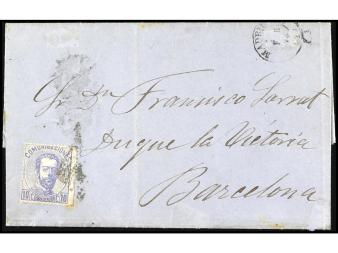 MADRID
Sr Dn Francisco Sarrat
Duque la Victoria
Barcelona
COMUNICACIONES
10 10